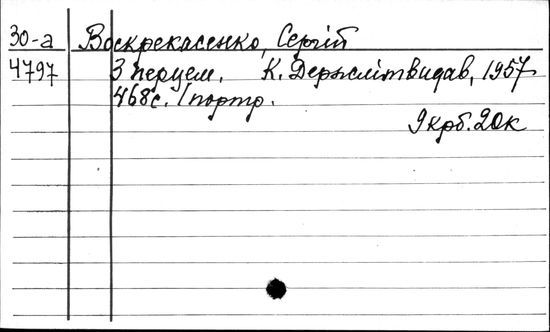 30-а Воскрекасенко, Сергій
4797 З перцем. К. Держлітвидав, 1957
468с. 1 портр.
9 крб. 20к